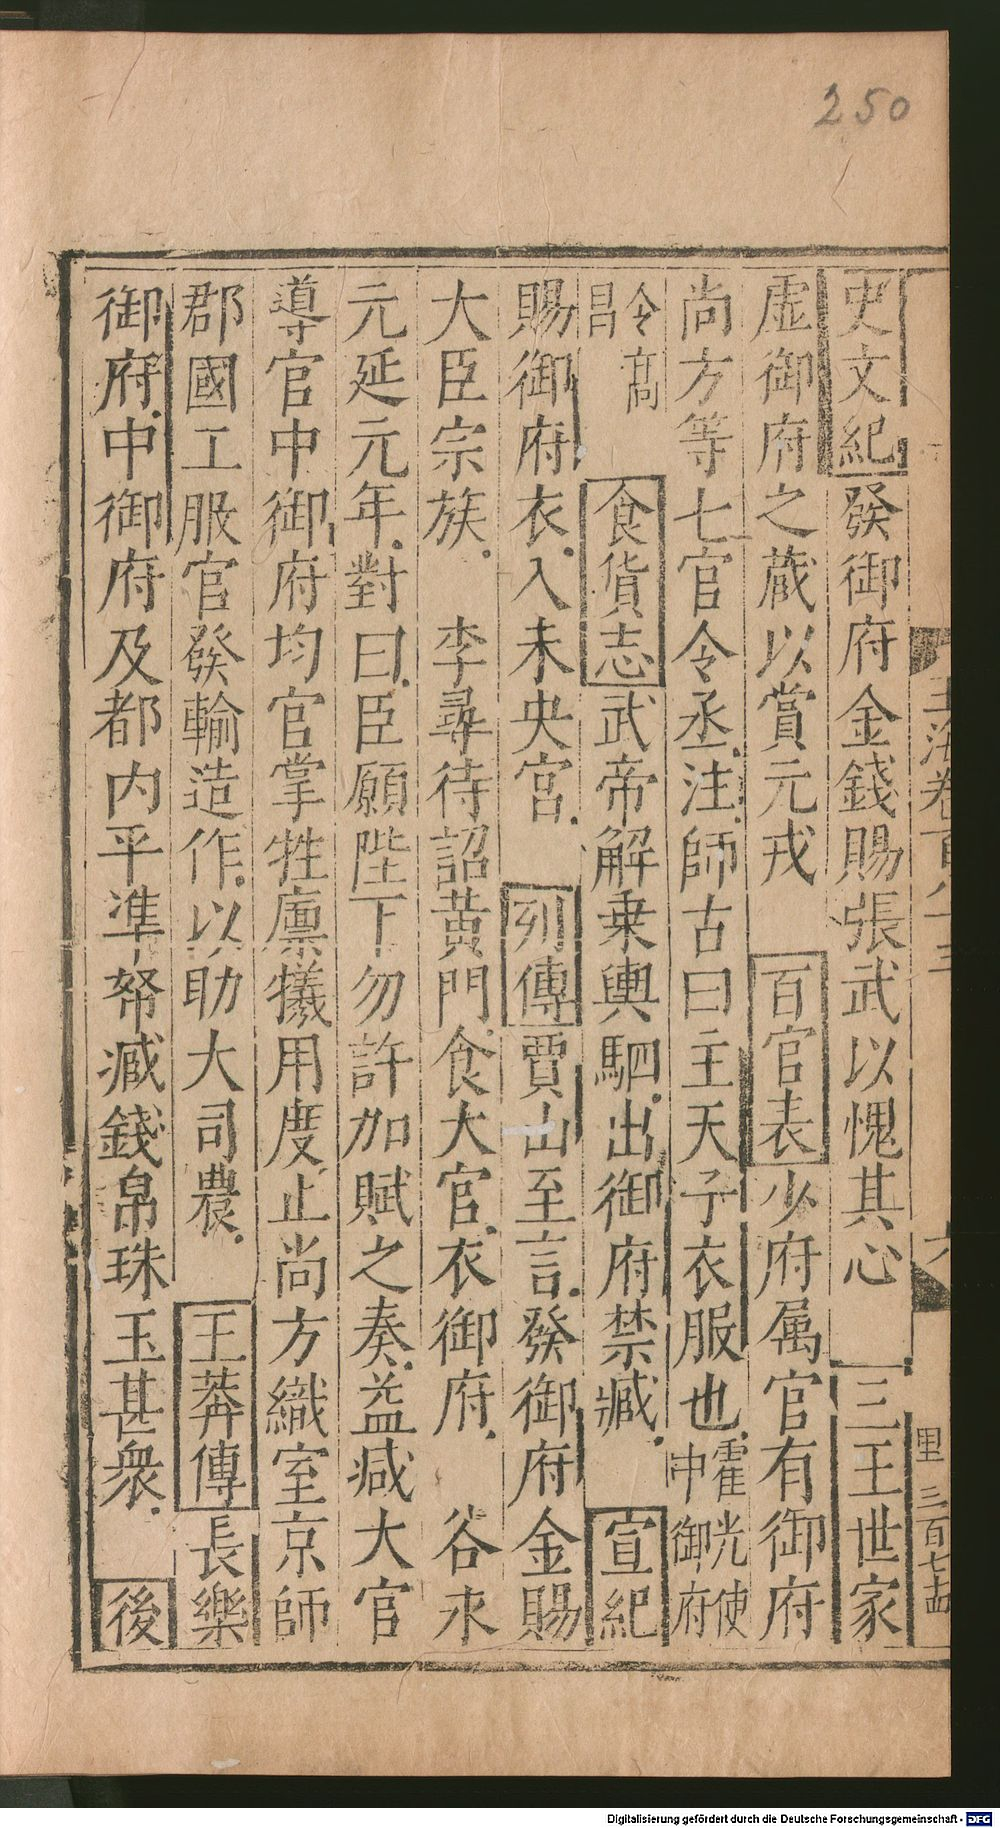 250
玉海卷百八十三
六
里 三百七十四
史文紀發御府金錢賜張武以愧其心 三王世家
虚御府之蔵以賞元戎 百官表少府属官有御府
尚方等七官令丞注師古曰主天子衣服也霍光使中御府
令高昌 食貨志武帝解乗輿駟出御府禁臧 宣紀
賜御府衣入未央宮 列傳賈山至言發御府金賜
大臣宗族 李尋待詔黄門食大官衣御府 谷永
元延元年對曰臣願陛下勿許加賦之奏益减大官
導官中御府均官掌牲廪犧用度止尚方織室京師
郡國工服官發輸造作以助大司農 王莽傳長樂
御府中御府及都内平準帑臧錢帛珠玉甚衆 後
Digitalisierung gefördert durch die Deutsche Forschungsgemeinschaft - DFG